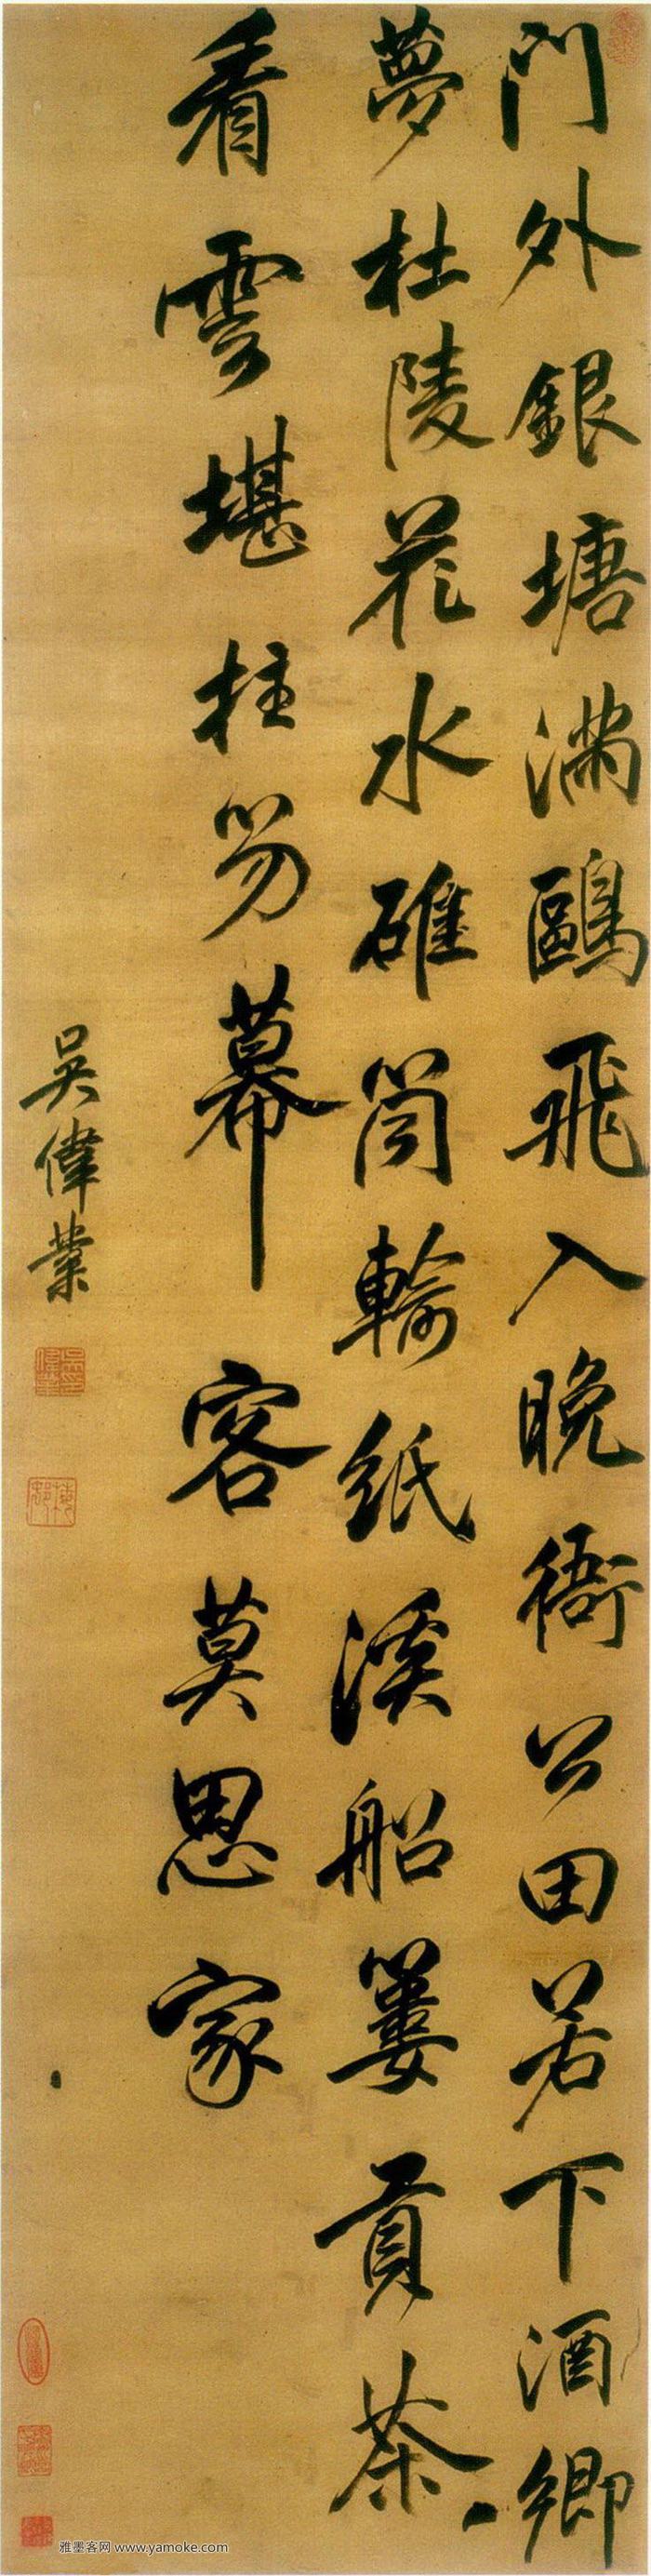 門外銀塘滿鷗飛入晚衙公田若下酒鄉
夢杜陵花水碓筒輸紙溪船簍貢茶
看雲堪拄笏幕客莫思家
吳偉業
雅墨客网 www.yamoke.com